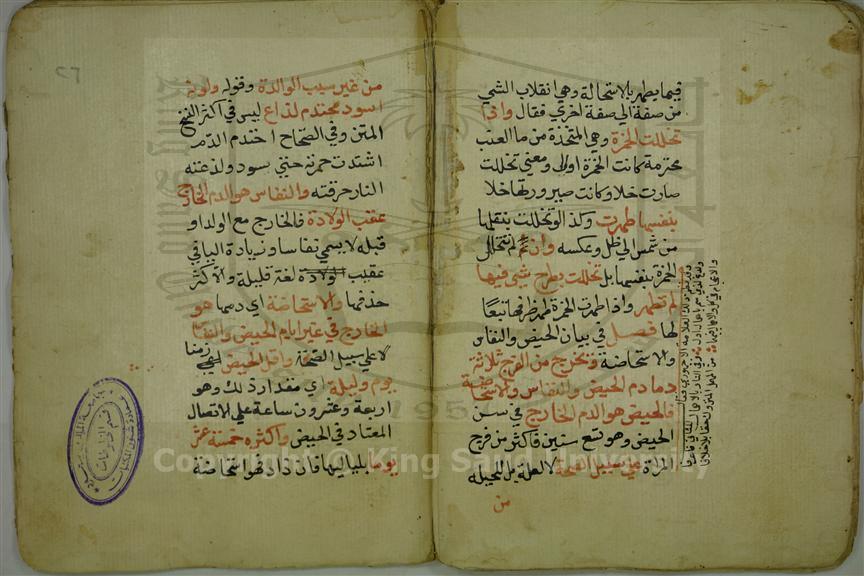 فيما يطهر بالاستحالة وهي انقلاب الشي
من صفة الي صفة اخري فقال واذا
تخللت الخمرة وهي المتخذة من ما العنب
محترمة كانت الخمرة اولا ومعني تخللت
صارت خلا وكانت صيرورتها خلا
بنفسها طهرت وكذا لو تخللت بنقلها
من شمس الي ظل وعكسه وان لم تتخلل
الخمرة بنفسها بل تخللت بطرح شي فيها
لم تطهر واذا طهرت الخمرة طهر ظرفها تبعا
لها فصل في بيان الحيض والنفاس
والاستحاضة ويخرج من الفرج ثلاثة
دما دم الحيض والنفاس والاستحاضة
فالحيض هو الدم الخارج في سن
الحيض وهو تسع سنين فاكثر من فرج
المراة علي سبيل الصحة لا لعلة بل للجبلة
من
٢٦
من غير سبب الولادة وقوله ولونه
اسود محتدم لذاع ليس في اكثر النسخ
المتن وفي الصحاح احتدم الدم
اشتدت حمرته حتي يسود ولذعته
النار حرقته والنفاس هو الدم الخارج
عقب الولادة فالخارج مع الولد او
قبله لا يسمي نفاسا وزيادة اليا في
عقيب الولادة لغة قليلة والاكثر
حذفها والاستحاضة اي دمها هو
الخارج في غير ايام الحيض والنفاس
لا علي سبيل الصحة واقل الحيض زمنا
يوم وليلة اي مقدار ذلك وهو
اربعة وعشرون ساعة علي الاتصال
المعتاد في الحيض واكثره خمسة عشر
يوما بلياليها فان زاد فهو استحاضة
Copyright © King Saud University
195